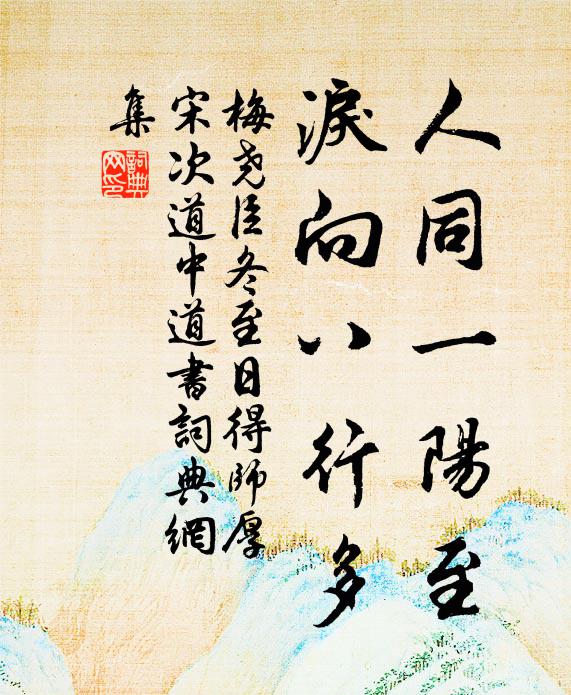 人同一陽至
淚向八行多
梅堯臣冬至日得師厚
宋次道中道書詞典網
集
詞典網印